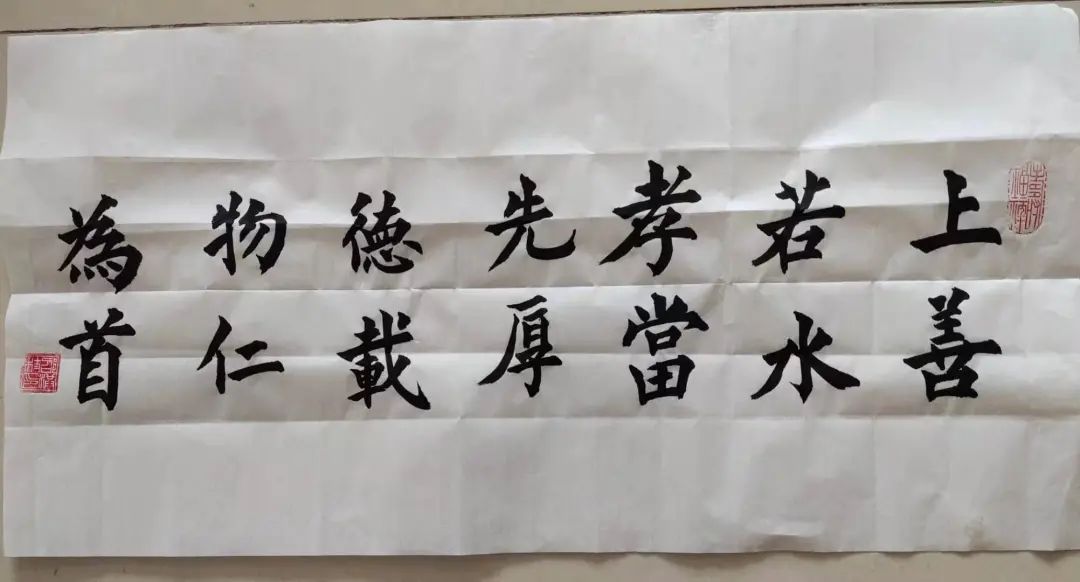 上善
若水
孝當
先厚
德載
物仁
為首